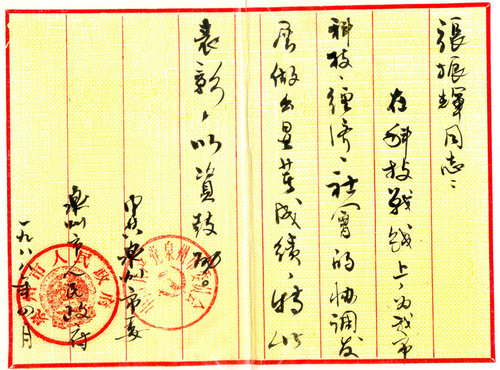 張振輝同志：
在科技戰线上，为我市
科技、經济、社會的协調发
展做出显著成績，特此
表彰，以資鼓励。
中共泉州市委
泉州市人民政府
一九八八年四月
泉州市人民政府